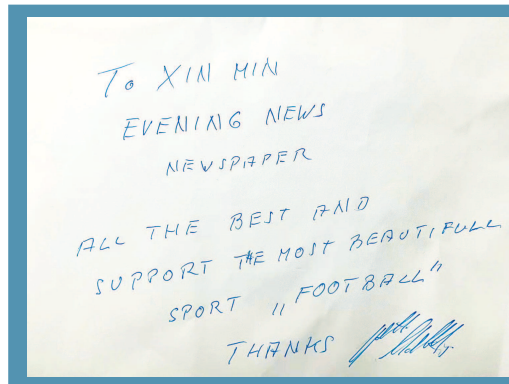 To XIN MIN
EVENING NEWS
NEWSPAPER
ALL THE BEST AND
SUPPORT THE MOST BEAUTIFULL
SPORT „FOOTBALL"
THANKS